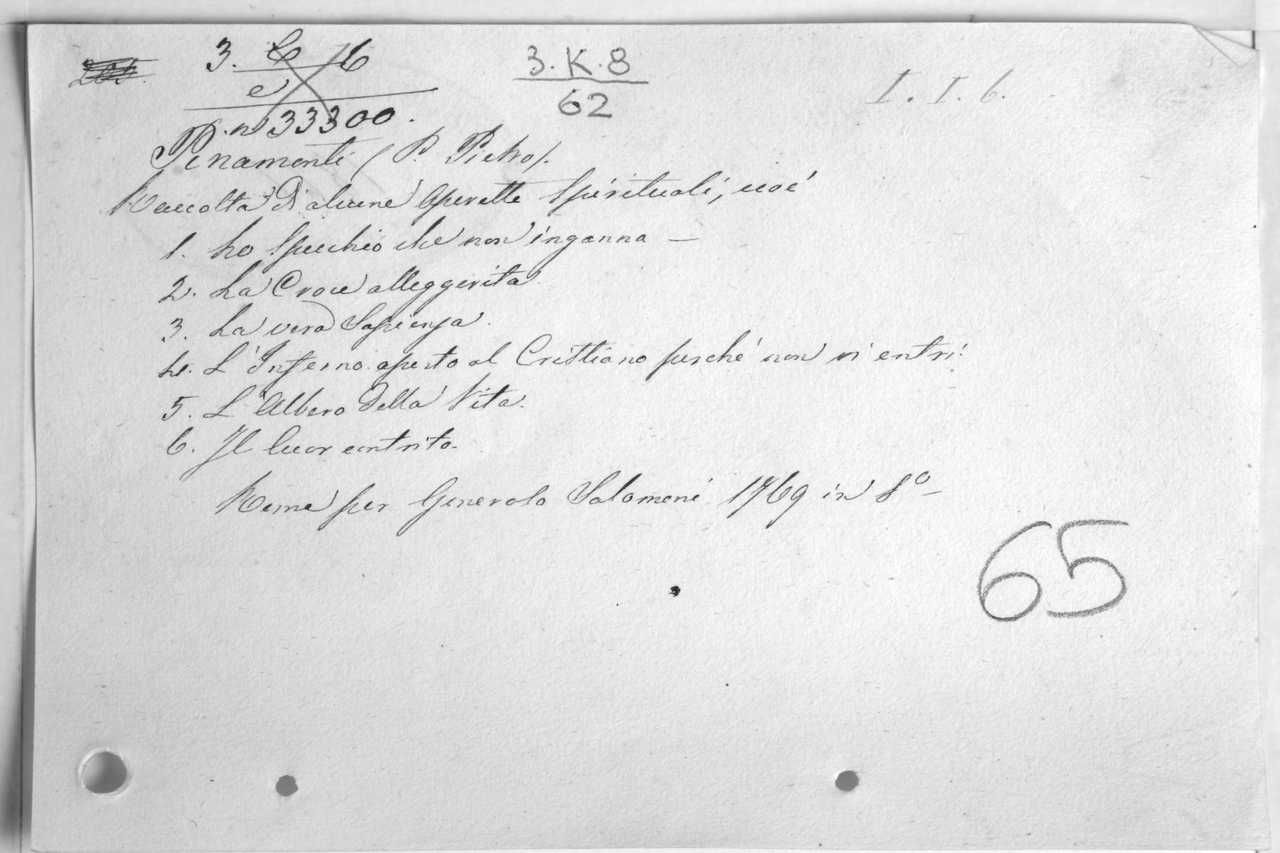 3. C 16
e
n 33300.
3.K.8
62
I. I. 6.
Pinamonti (P. Pietro).
Raccolta di alcune operette spirituali, cioè
1. Lo Specchio che non inganna –
2. La Croce alleggerita
3. La vera Sapienza.
4. L'Inferno aperto al Cristiano perché non vi entri.
5. L'Albero della Vita.
6. Il Cuor contrito.
Roma per Generoso Salomoni 1769 in 8º –
65